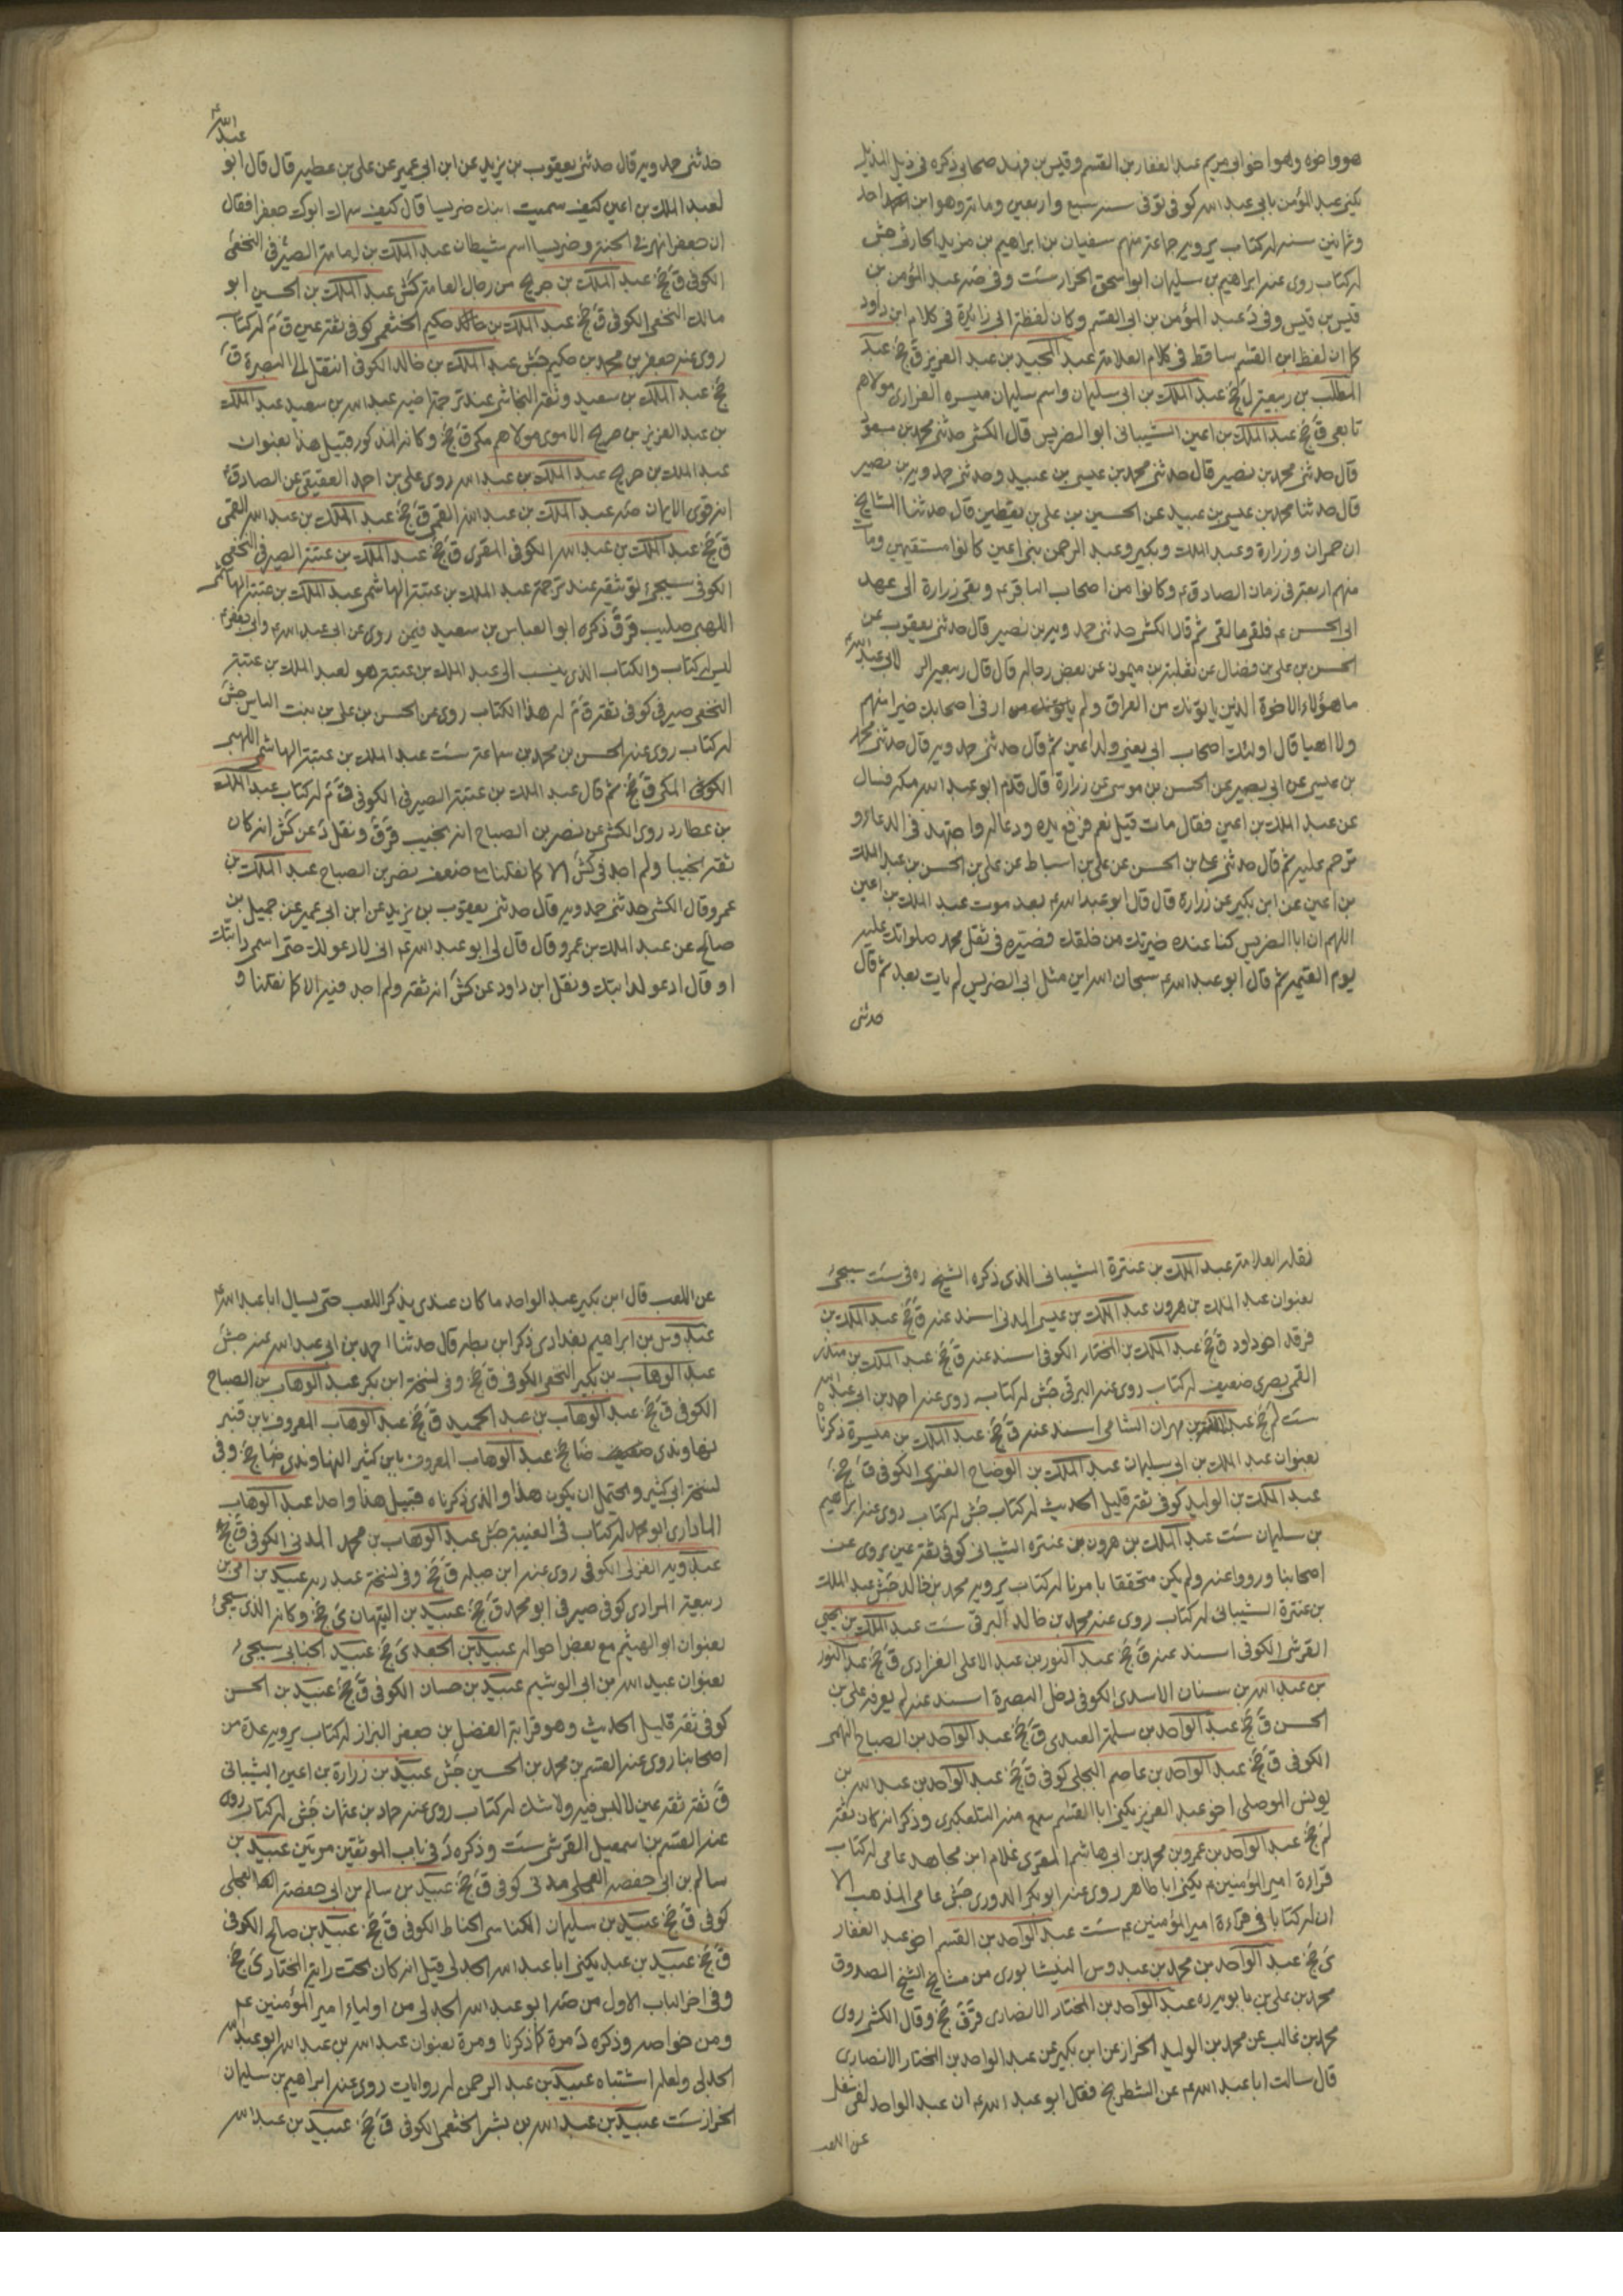 هو واخوه وهو اخو ابى مريم عبد الغفار بن القسم وقيس بن فهد صحابى ذكره فى ذيل المذيل
يكنى عبد المؤمن بابى عبد الله كوفى توفى سنه سبع واربعين ومائه وهو ابن احد
وثمانين سنه له كتاب يرويه جماعة منهم سفيان بن ابراهيم بن مزيد الحارثى جش
له كتاب روى عنه ابراهيم بن سليمان ابو اسحق الخزاز ست وفى صه عبد المؤمن بن
قيس بن قيس وفى د عبد المؤمن بن ابى القسم وكان لفظة ابى زائدة فى كلام ابن داود
كما ان لفظ ابن القسم ساقط فى كلام العلامة عبد المجيد بن عبد العزيز ق جخ عبد
المطلب بن ربيعة ل جخ عبد الملك بن ابى سليمان واسم سليمان ميسره الفزارى مولاهم
تابعى ق جخ عبد الملك بن اعين الشيبانى ابو الضريس قال الكشى حدثنى محمد بن مسعود
قال حدثنى محمد بن نصير قال حدثنى محمد بن عيسى بن عبيد وحدثنى حمدويه بن نصير
قال حدثنا محمد بن عيسى بن عبيد عن الحسين بن على بن يقطين قال حدثنا المشايخ
ان حمران وزرارة وعبد الملك وبكير وعبد الرحمن بنى اعين كانوا مستقيمين ومات
منهم اربعة فى زمان الصادق ع وكانوا من اصحاب الباقر ع وبقى زرارة الى عهد
ابى الحسن ع فلقى ما لقى ثم قال الكشى حدثنى حمدويه بن نصير قال حدثنى يعقوب عن
الحسن بن على بن فضال عن ثعلبة بن ميمون عن بعض رجاله قال قال ربيعة الراى لابى عبد الله ع
ما هؤلاء الاخوة الذين ياتونك من العراق ولم ار فى اصحابك خيرا منهم
ولا اهيا قال اولئك اصحاب ابى يعنى ولد اعين ثم قال حدثنى حمدويه قال حدثنى محمد
بن عيسى عن ابى نصير عن الحسن بن موسى عن زرارة قال قدم ابو عبد الله مكه فسال
عن عبد الملك بن اعين فقال مات قيل نعم فرفع يده ودعا له واجتهد فى الدعاء و
ترحم عليه ثم قال حدثنى على بن الحسن عن على بن اسباط عن على بن الحسن بن عبد الملك
بن اعين عن ابن بكير عن زرارة قال قال ابو عبد الله ع بعد موت عبد الملك بن اعين
اللهم ان ابا الضريس كنا عنده خيرتك من خلقك فصيره فى ثقل محمد صلواتك عليه
يوم القيمه ثم قال ابو عبد الله ع سبحان الله اين مثل ابى الضريس لم يات بعد ثم قال
حدثنى
عبد الله ع
حدثنى حمدويه قال حدثنى يعقوب بن يزيد عن ابن ابى عمير عن على بن عطيه قال قال ابو
لعبد الملك بن اعين كيف سميت ابنك ضريسا قال كيف سماك ابوك جعفرا فقال
ان جعفرا نهر فى الجنة وضريسا اسم شيطان عبد الملك بن الصيرفى النخعى
الكوفى ق جخ عبد الملك بن جريج من رجال العامة كش عبد الملك بن الحسين ابو
مالك النخعى الكوفى ق جخ عبد الملك بن حكيم الخثعمى كوفى ثقة عين ق م له كتاب
روى عنه جعفر بن محمد بن حكيم جش عبد الملك بن خالد الكوفى انتقل الى البصرة ق
جخ عبد الملك بن سعيد وثقه النجاشى عند ترجمة اخيه عبد الله بن سعيد عبد الملك
بن عبد العزيز بن جريج الاموى مولاهم مكى ق جخ وكانه المذكور قبيل هذا بعنوان
عبد الملك بن جريج عبد الملك بن عبد الله روى على بن احمد العقيقى عن الصادق ع
انه قوى الايمان صه عبد الملك بن عبد الله القمى ق جخ عبد الملك بن عبد الله القمى
ق جخ عبد الملك بن عبد الله الكوفى المقرى ق جخ عبد الملك بن عتبة الصيرفى النخعى
الكوفى سيجئ توثيقه عند ترجمة عبد الملك بن عتبة الهاشمى عبد الملك بن عتبة الهاشمى
اللهبى صليب قر ق ذكره ابو العباس بن سعيد فيمن روى عن ابى عبد الله ع وابى جعفر ع
ليس له كتاب والكتاب الذى ينسب الى عبد الملك بن عتبة هو لعبد الملك بن عتبة
النخعى صيرفى كوفى ثقة ق م له هذا الكتاب روى عن الحسن بن على بن بنت الياس جش
له كتاب روى عنه الحسن بن محمد بن سماعة ست عبد الملك بن عتبة الهاشمى اللهبى
الكوفى المكى ق جخ ثم قال عبد الملك بن عتبة الصيرفى الكوفى ق م له كتاب عبد الملك
بن عطا رد روى الكشى عن نصر بن الصباح انه نجيب قر ق ونقل د عن كش انه كان
ثقه نجيبا ولم اجد فى كش الا كما نقلنا مع ضعف نصر بن الصباح عبد الملك بن
عمرو قال الكشى حدثنى حمدويه قال حدثنى يعقوب بن يزيد عن ابن ابى عمير عن جميل بن
صالح عن عبد الملك بن عمرو قال قال لى ابو عبد الله ع انى لادعو لك حتى اسمى دابتك
او قال ادعو لدابتك ونقل ابن داود عن كش انه ثقه ولم اجد فيه الا كما نقلنا و
نقله العلامة عبد الملك بن عنترة الشيبانى الذى ذكره الشيخ ره فى ست سيجئ
بعنوان عبد الملك بن هرون عبد الملك بن عيسى المدنى اسند عنه ق جخ عبد الملك بن
فرقد اخو داود ق جخ عبد الملك بن المختار الكوفى اسند عنه ق جخ عبد الملك بن منذر
القمى بصرى ضعيف له كتاب روى عنه البرقى جش له كتابه روى عنه احمد بن ابى عبد الله
ست لم جخ عبد الملك بن مهران الشامى اسند عنه ق جخ عبد الملك بن ميسرة ذكرناه
بعنوان عبد الملك بن ابى سليمان عبد الملك بن الوضاح العنزى الكوفى ق جخ
عبد الملك بن الوليد كوفى ثقة قليل الحديث له كتاب جش له كتاب روى عنه ابراهيم
بن سليمان ست عبد الملك بن هرون بن عنترة الشيبانى كوفى ثقة عين يروى عن
اصحابنا ورووا عنه ولم يكن متحققا بامرنا له كتاب يرويه محمد بن خالد جش عبد الملك
بن عنترة الشيبانى له كتاب روى عنه محمد بن خالد البرقى ست عبد الملك بن يحيى
القرشى الكوفى اسند عنه ق جخ عبد النور بن عبد الاعلى الفزارى ق جخ عبد النور
بن عبد الله بن سنان الاسدى الكوفى دخل البصرة اسند عنه لم يعرفه على بن
الحسن ق جخ عبد الواحد بن سلمة العبدى ق جخ عبد الواحد بن الصباح
الكوفى ق جخ عبد الواحد بن عاصم البجلى كوفى ق جخ عبد الواحد بن عبد الله بن
يونس الموصلى اخو عبد العزيز يكنى ابا القسم سمع منه التلعكبرى وذكر انه كان ثقه
لم جخ عبد الواحد بن عمر وبن محمد بن ابى هاشم المقرى غلام ابن مجاهد عامى له كتاب
قراءة امير المؤمنين ع يكنى ابا طاهر روى عنه ابو بكر الدورى جش عامى المذهب الا
ان له كتابا فى قراءة امير المؤمنين ع ست عبد الواحد بن القسم اخو عبد الغفار
ى جخ عبد الواحد بن محمد بن عبدوس النيشابورى من مشايخ الشيخ الصدوق
محمد بن على بن بابويه ره عبد الواحد بن المختار الانصارى قر ق جخ وقال الكشى روى
محمد بن غالب عن محمد بن الوليد الخزاز عن ابن بكير عن عبد الواحد بن المختار الانصارى
قال سالت ابا عبد الله ع عن الشطرنج فقال ابو عبد الله ع ان عبد الواحد لفى شغل
عن اللعب
عن اللعب قال ابن بكير عبد الواحد ما كان عندى يذكر اللعب حتى يسال ابا عبد الله ع
عبدوس بن ابراهيم بغدادى ذكر ابن بطه قال حدثنا احمد بن ابى عبد الله عنه جش
عبد الوهاب بن بكير النخعى الكوفى ق جخ وفى نسخة ابن بكر عبد الوهاب بن الصباح
الكوفى ق جخ عبد الوهاب بن عبد الحميد ق جخ عبد الوهاب المعروف بابن قنبر
نهاوندى ضا جخ عبد الوهاب المعروف بابن كثير النهاوندى ضا جخ وفى
نسخة ابى كثير ويحتمل ان يكون هذا والذى ذكرناه قبيل هذا واحدا عبد الوهاب
المادارى ابو محمد له كتاب فى الغيبة جش عبد الوهاب بن محمد المدنى الكوفى ق جخ
عبدويه الغزلى الكوفى روى عنه ابن جبله ق جخ وفى نسخة عبد ربه عبيد بن ابى بن
ربيعة المرادى كوفى صيرفى ابو محمد ق جخ عبيد بن التيهان ى جخ وكانه الذى سيجئ
بعنوان ابو الهيثم مع بعض احواله عبيد بن الجعد ى جخ عبيد الجنابى سيجئ
بعنوان عبيد الله بن ابى الوشيم عبيد بن حسان الكوفى ق جخ عبيد بن الحسن
كوفى ثقة قليل الحديث وهو قرابة الفضل بن جعفر البزاز له كتاب يرويه عدة من
اصحابنا روى عنه القسم بن محمد بن الحسين جش عبيد بن زرارة بن اعين الشيبانى
ق ثقة ثقة عين لا لبس فيه ولا شك له كتاب روى عنه حماد بن عثمان جش له كتاب روى
عنه القسم بن اسمعيل القرشى ست وذكره د فى باب الموثقين مرتين عبيد بن
سالم بن ابى حفصه العجلى مدنى كوفى ق جخ عبيد بن سالم بن ابى حفصة العجلى
كوفى ق جخ عبيد بن سليمان الكناسى الحناط الكوفى ق جخ عبيد بن صالح الكوفى
ق جخ عبيد بن عبد يكنى ابا عبد الله الجدلى قيل انه كان تحت راية المختار ى جخ
وفى اخر الباب الاول من صه ابو عبد الله الجدلى من اولياء امير المؤمنين ع
ومن خواصه وذكره د مرة كما ذكرنا ومرة بعنوان عبد الله بن عبد الله ابو عبد الله
الجدلى ولعله اشتباه عبيد بن عبد الرحمن له روايات روى عنه ابراهيم بن سليمان
الخزاز ست عبيد بن عبد الله بن بشر الخثعمى الكوفى ق جخ عبيد بن عبد الله